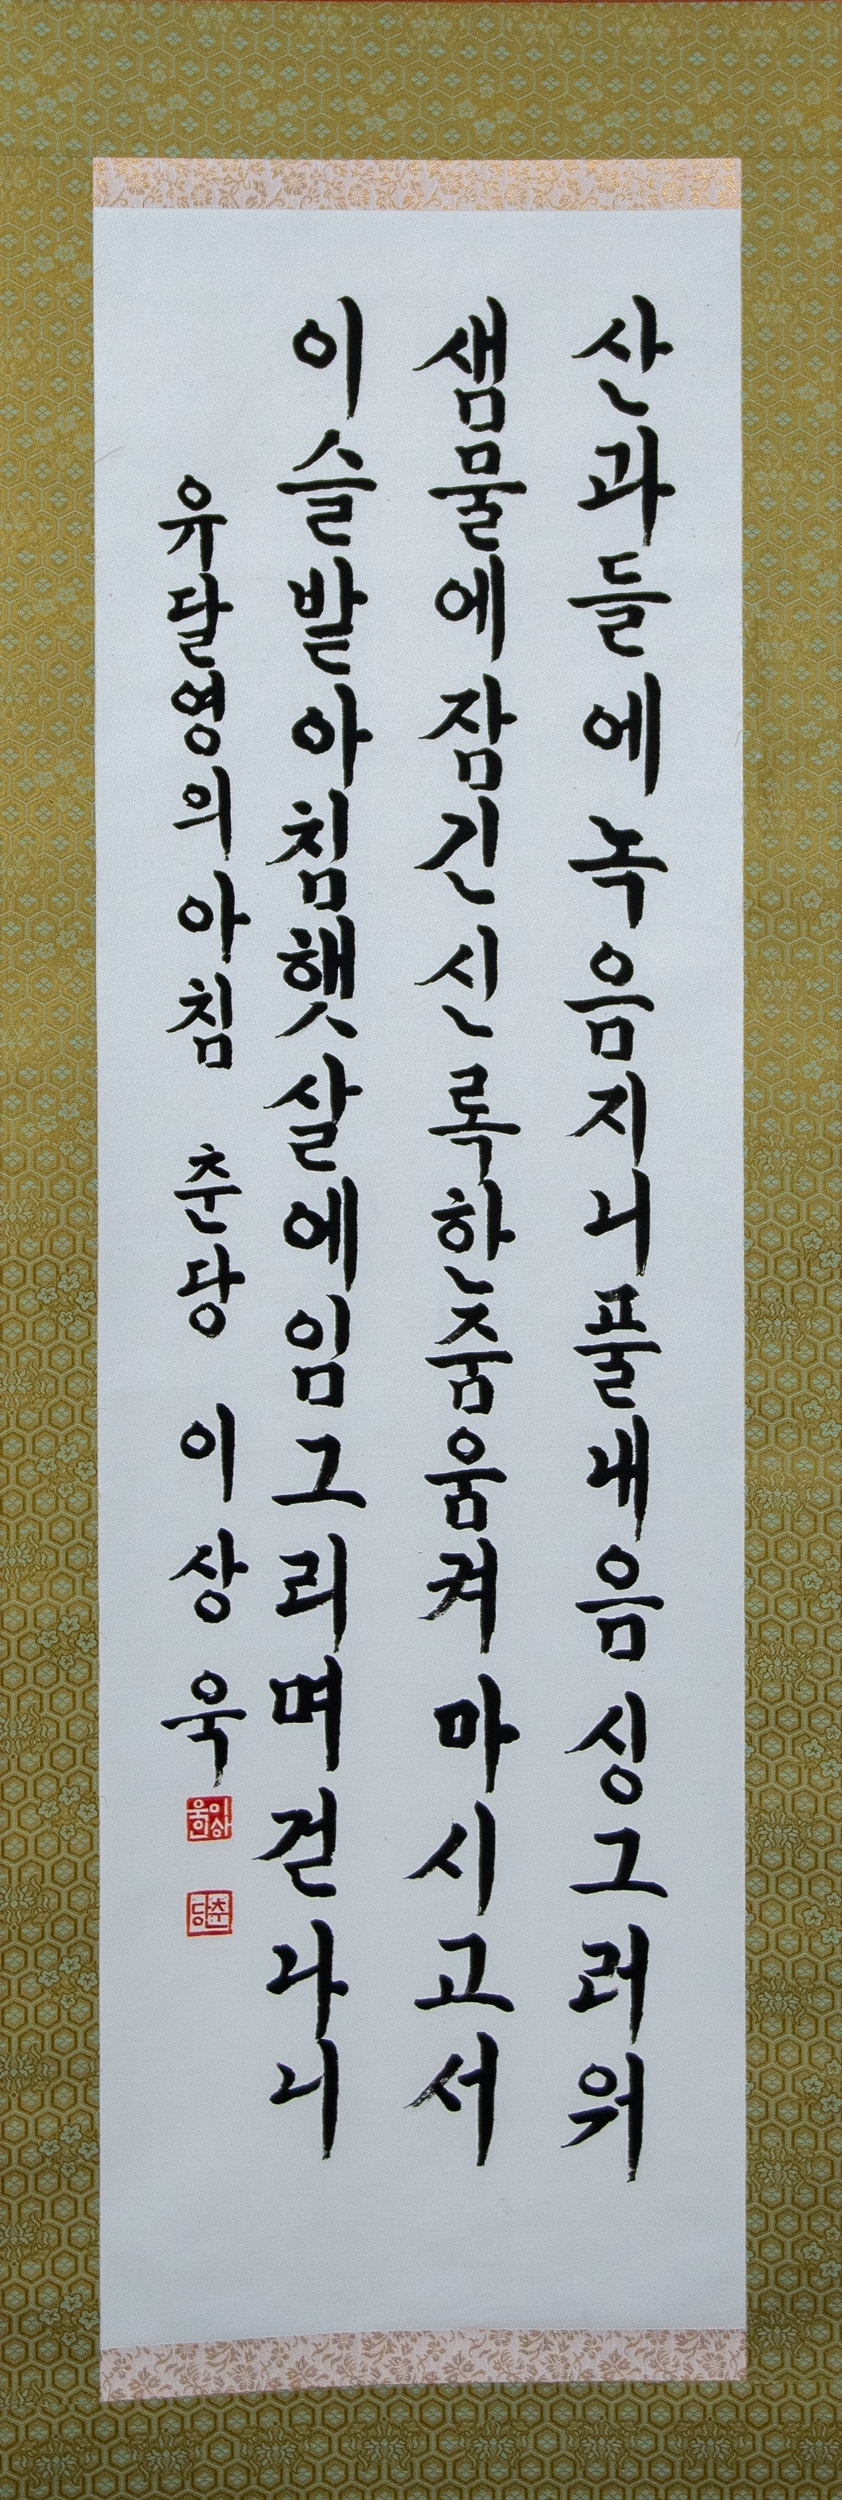 산과들에녹음지니풀내음싱그러워
샘물에잠긴신록한줌움켜마시고서
이슬밭아침햇살에임그리며걷나니
유달영의아침 춘당 이상욱
이상욱인
춘당